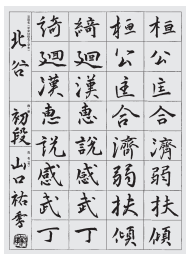 桓公匡合濟弱扶傾
桓公匡合濟弱扶傾
綺迴漢惠說感武丁
綺廻漢恵説感武丁
北谷 初段 山口祐季